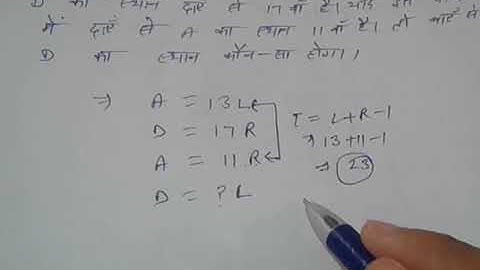 D का स्थान दाएँ से 17 वाँ है। यदि इस
में दाएँ से A का स्थान 11 वाँ है। तो बाएँ से
D का स्थान कौन-सा होगा।
⇒ A = 13 L
D = 17 R
A = 11 R
D = ? L
T = L+R-1
⇒ 13+11-1
⇒ 23